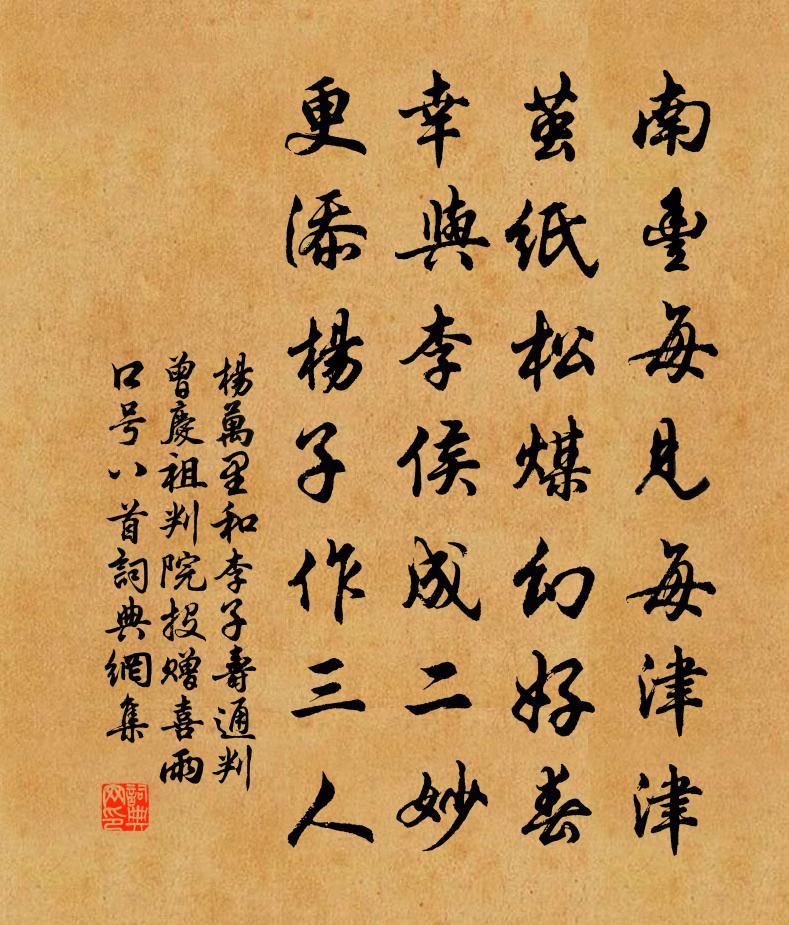 南豐每見每津津
茧紙松煤幻好春
幸與李侯成二妙
更添楊子作三人
楊萬里和李子壽通判
曾慶祖判院投贈喜雨
口号八首詞典網集
詞典网印